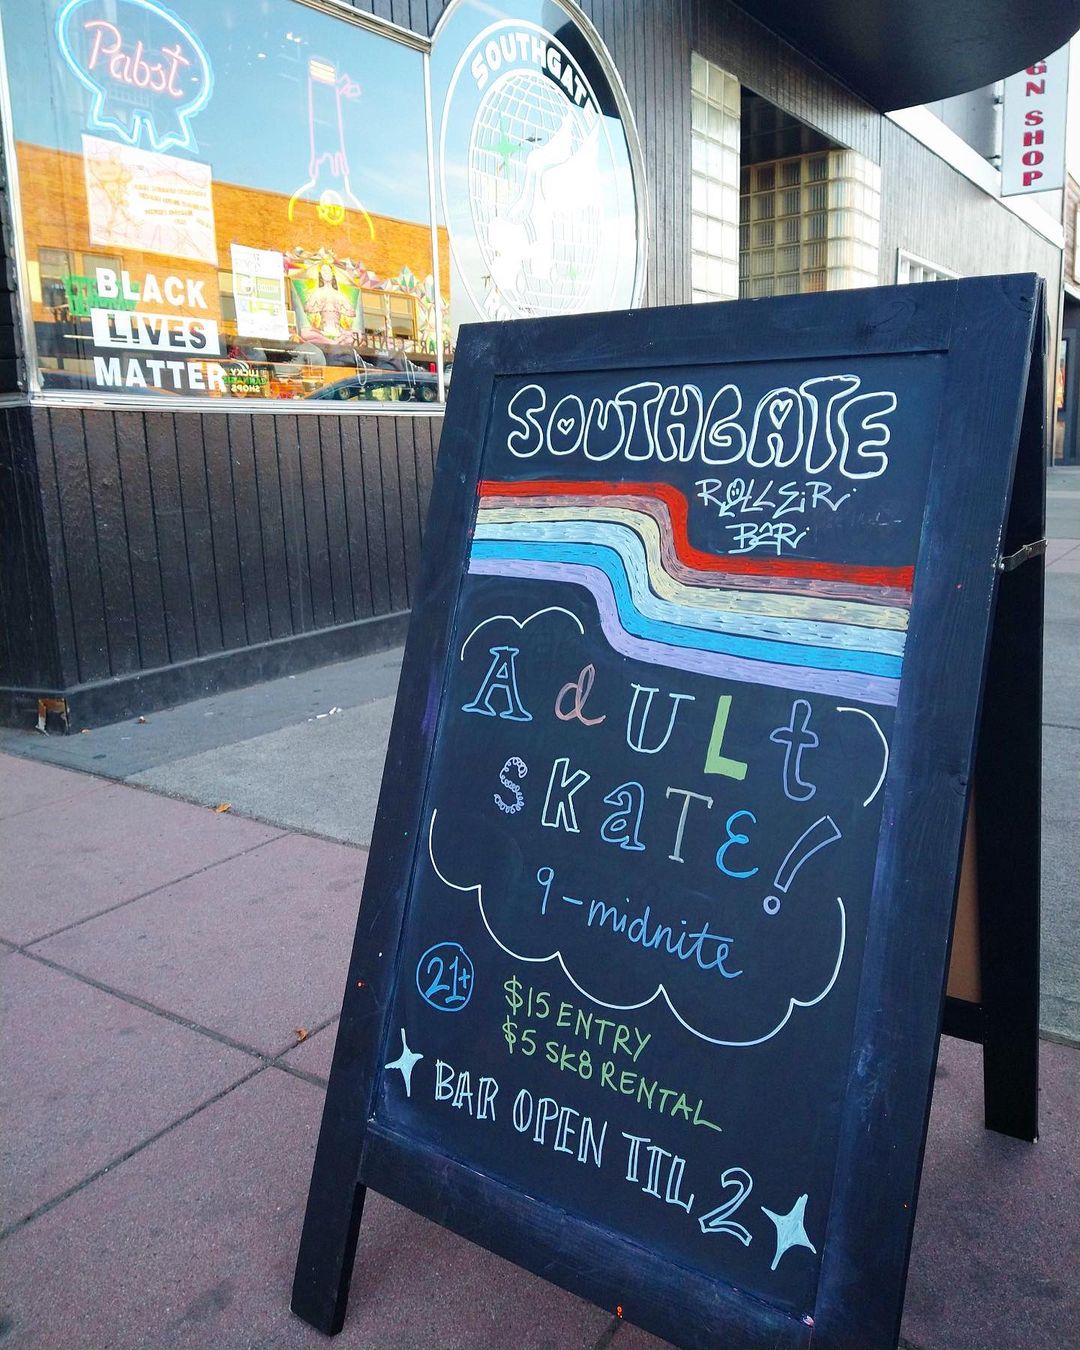 Pabst
SOUTHGAT
GN SHOP
BLACK
LIVES
MATTER
LUCKY
CANNABIS
SHOPS
SOUTHGATE
ROLLER
BAR
AdULt
SkaTE!
9-midnite
21+
$15 ENTRY
$5 SK8 RENTAL
BAR OPEN TIL 2